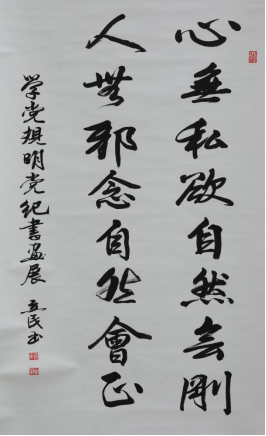 心無私欲自然会剛
人無邪念自然會正
学党規明党纪書画展 立民书